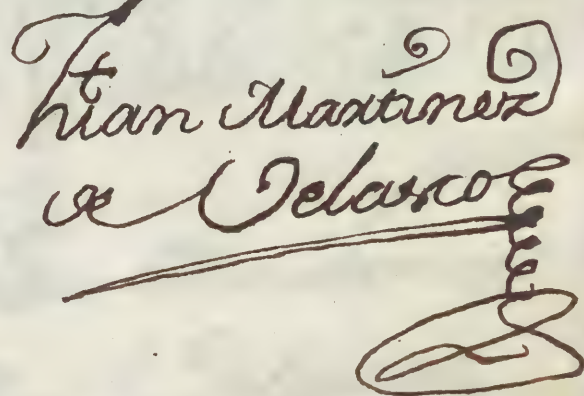 Martinez
de Velasco